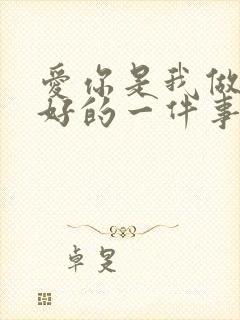 爱你是我做
好的一件事
卓旻